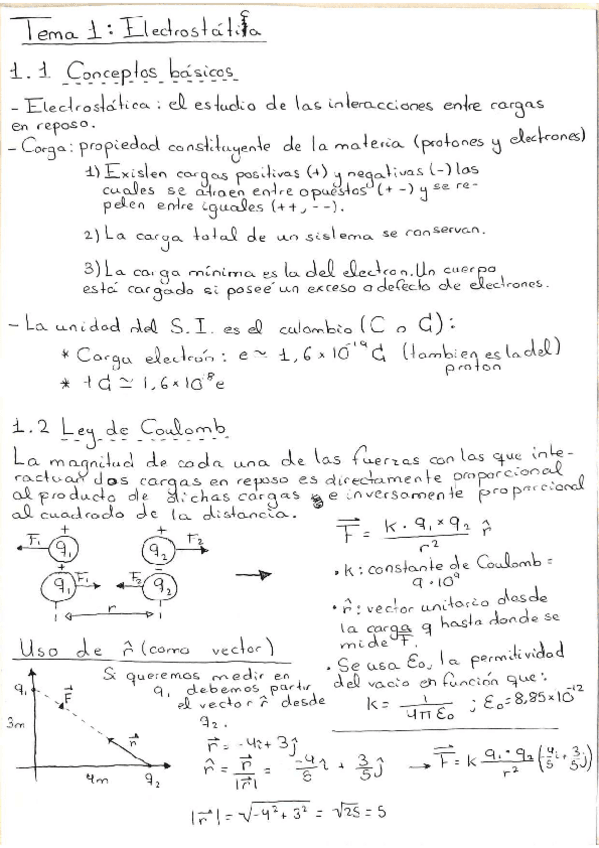 Tema 1: Electrostática
1.1 Conceptos básicos
- Electrostática: el estudio de las interacciones entre cargas
en reposo.
- Carga: propiedad constituyente de la materia (protones y electrones)
1) Existen cargas positivas (+) y negativas (-) las
cuales se atraen entre opuestos (+ -) y se re-
pelen entre iguales (++, --).
2) La carga total de un sistema se conservan.
3) La carga mínima es la del electron. Un cuerpo
está cargado si poseé un exceso o defecto de electrones.
- La unidad del S.I. es el culombio (C o C):
* Carga electrón: e ≃ 1,6×10⁻¹⁹ C (tambien es la del)
proton
* 1C ≃ 1,6×10⁻⁸ e
1.2 Ley de Coulomb
La magnitud de cada una de las fuerzas con las que inte-
ractuan dos cargas en reposo es directamente proporcional
al producto de dichas cargas e inversamente proporcional
al cuadrado de la distancia.
F⃗ = k · q₁ × q₂ / r² r̂
+ +
F₁ q₁ q₂ F₂
+ -
q₁ F₁ F₂ q₂
r
· k: constante de Coulomb =
9·10⁹
· r̂: vector unitario desde
la carga q hasta donde se
mide F⃗.
· Se usa ε₀, la permitividad
del vacio en función que:
k = 1 / 4π ε₀ ; ε₀ = 8,85×10⁻¹²
Uso de r̂ (como vector)
Si queremos medir en
q₁ debemos partir
el vector r̂ desde
q₂.
q₁
F⃗
3m
r⃗
4m
q₂
r⃗ = -4î + 3ĵ
r̂ = r⃗ / |r⃗| = -4/5 î + 3/5 ĵ → F⃗ = k q₁ · q₂ / r² (-4/5 i + 3/5 j)
|r⃗| = √-4² + 3² = √25 = 5